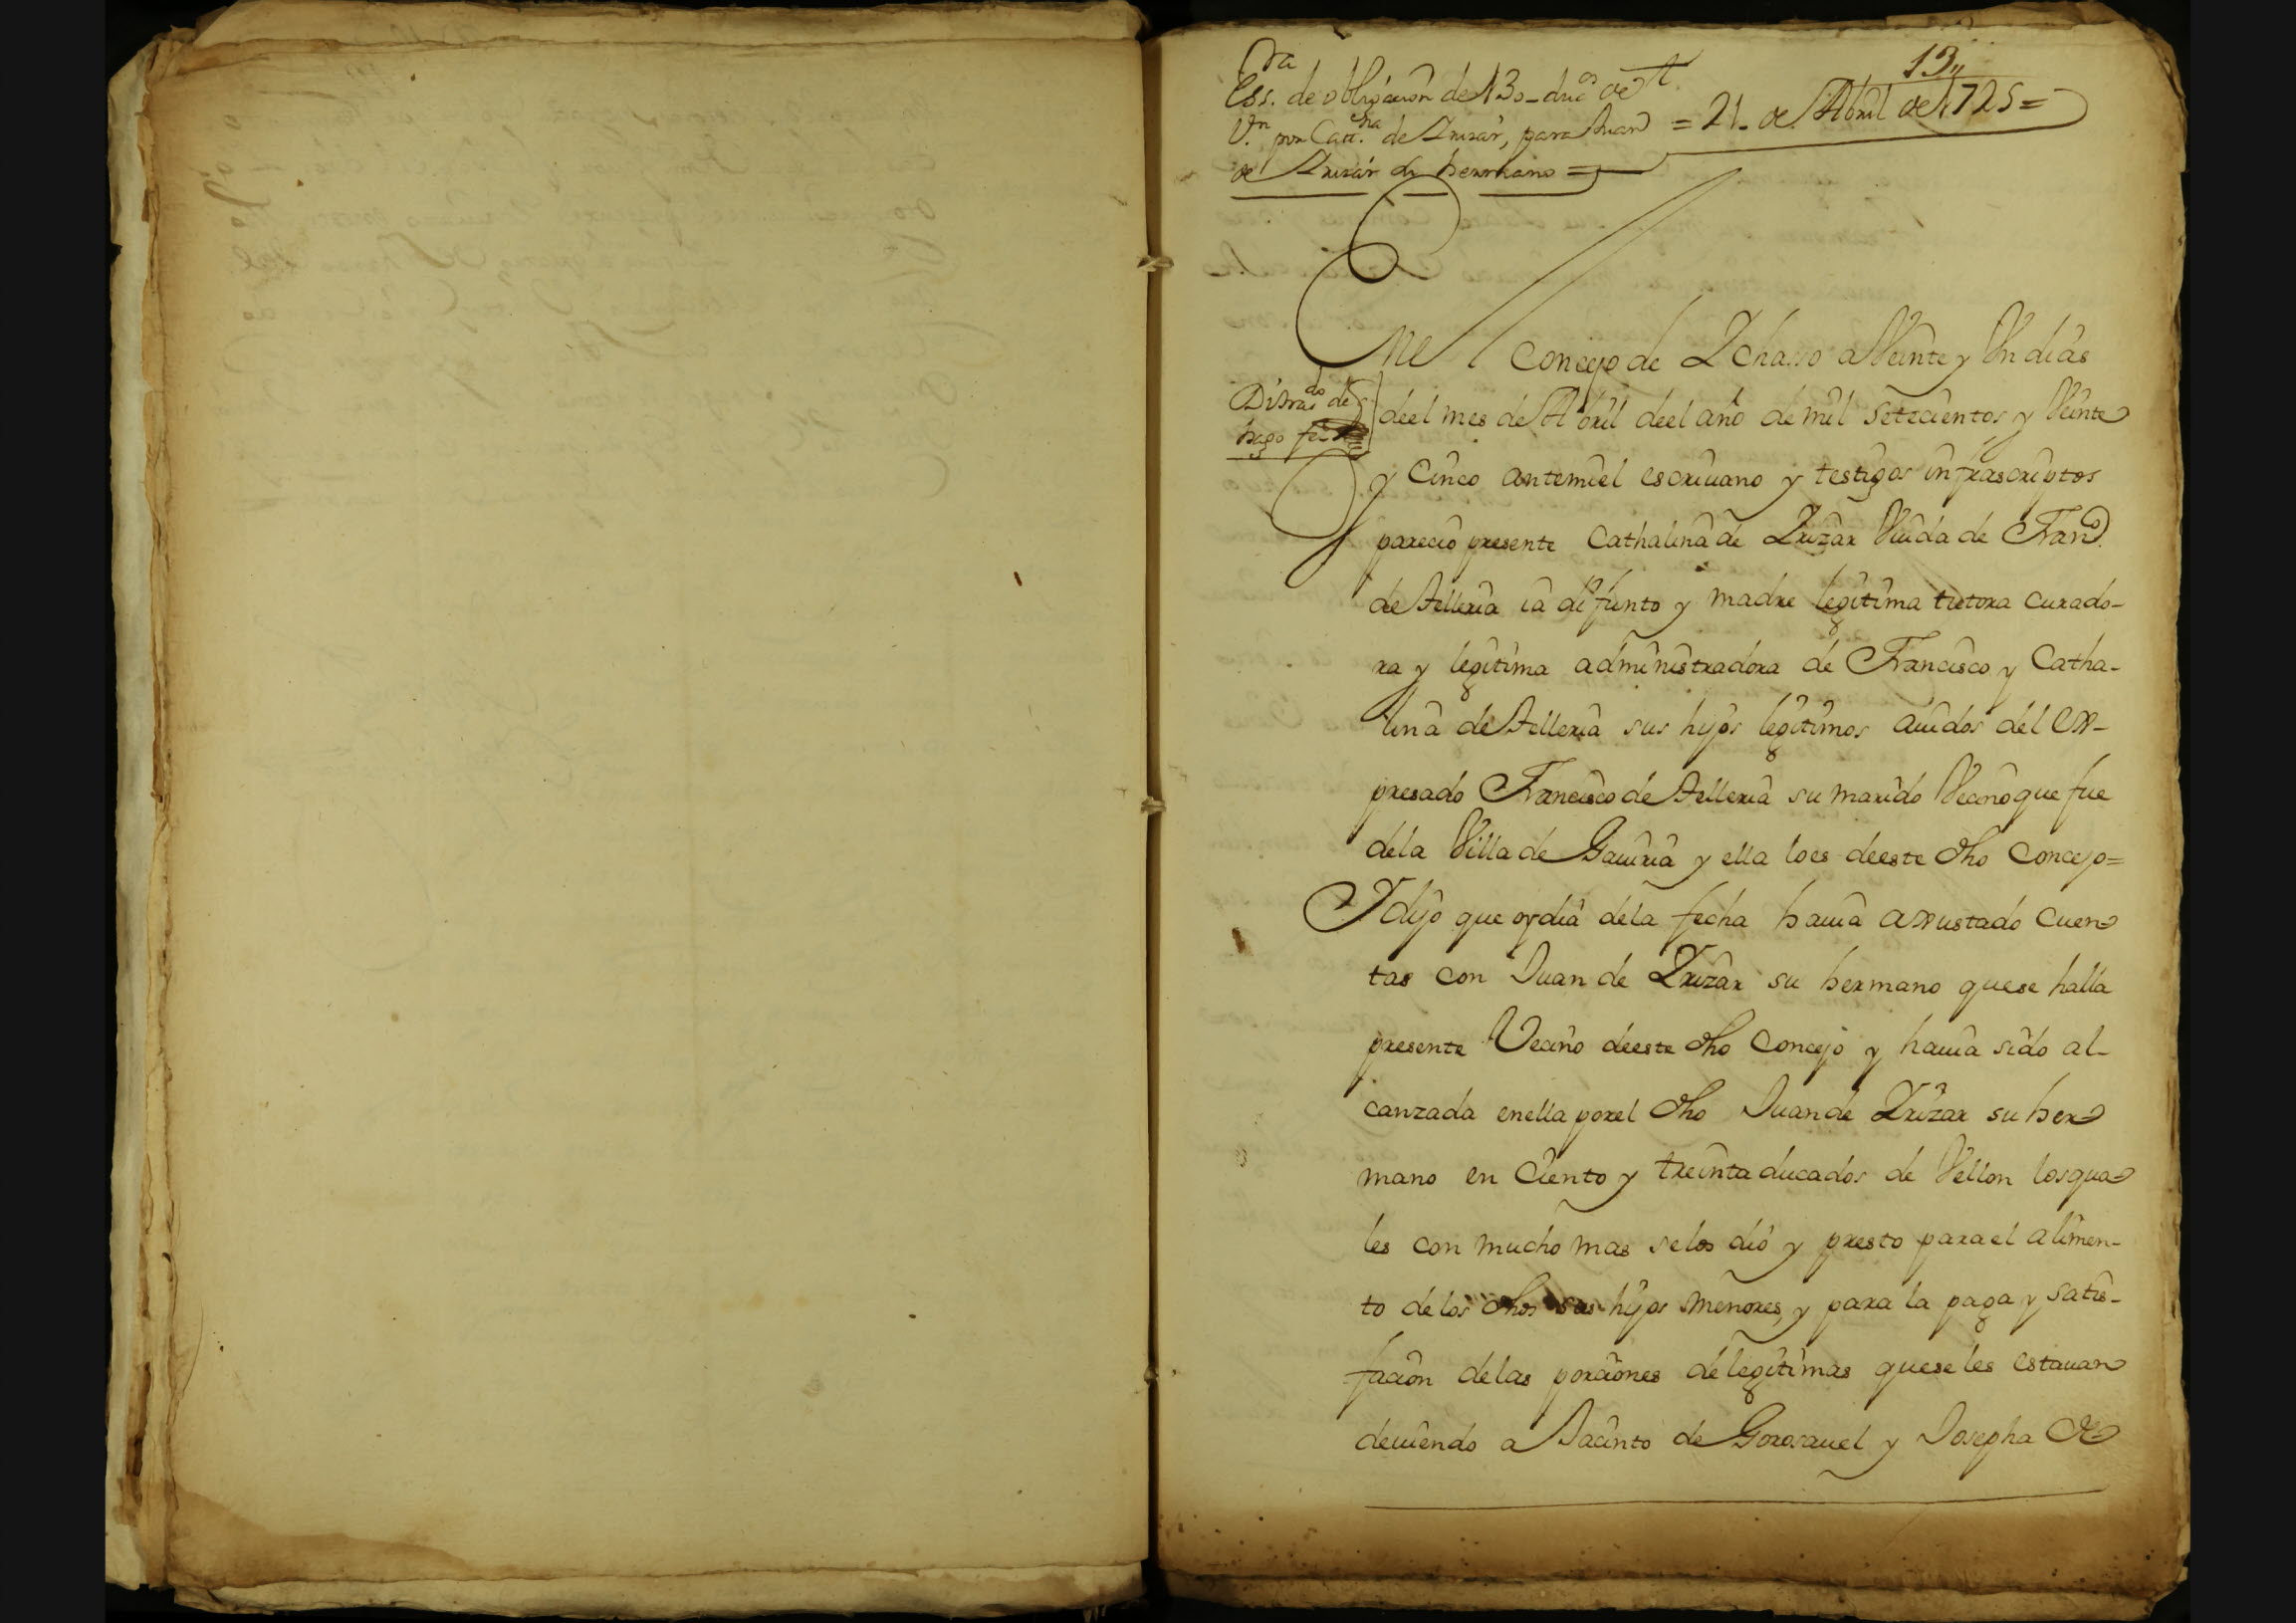 13,,
Essra. de obligacion de 130 ducos de
Vn. por Catna. de Yrizar, para Juan
de Yrizar su hermano =
= 21. de Abril de 1725 =
En el Concejo de Ychaso a Veinte y Un dias
deel mes de Abril deel año de mil setecientos y Veinte
y Cinco antemiel escriuano y testigos infrascriptos
parecio presente Cathalina de Yrizar Viuda de Franco.
de Telleria ia difunto y madre legitima tutora curado-
ra y legitima administradora de Francisco y Catha-
lina de Telleria sus hijos legitimos auidos del ex-
presado Francisco de Telleria su marido Vecino que fue
dela Villa de Gauiria y ella loes deeste dho Concejo=
Y dijo que oy dia dela fecha hauia axustado cuen
tas con Juan de Yrizar su hermano quese halla
presente Vecino deeste dho Concejo y hauia sido al-
canzada enella porel dho Juan de Yrizar su her
mano en Ciento y treinta ducados de Vellon losqua
les con mucho mas selos dió y presto parael alimen-
to delos dhos sus hijos menores, y para la paga y satis-
facion delas porciones de legitimas quese les estauan
deuiendo a Jacinto de Gorosauel y Josepha de
Disrado de
hago fee